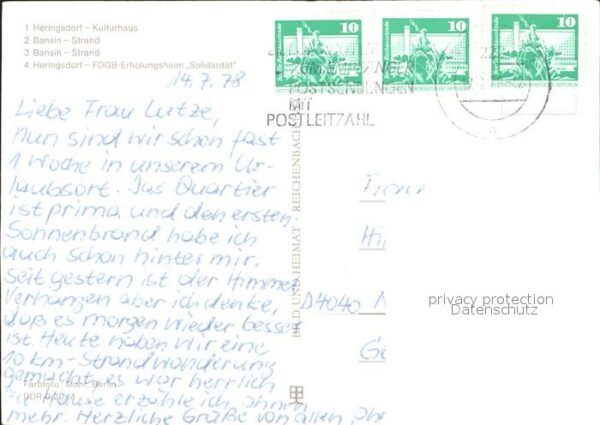 1 Heringsdorf – Kulturhaus
2 Bansin – Strand
3 Bansin – Strand
4 Heringsdorf – FDGB-Erholungsheim „Solidarität"
14.7.78
Liebe Frau Lutze,
Nun sind wir schon fast
1 Woche in unserem Ur-
laubsort. Das Quartier
ist prima und den ersten
Sonnenbrand habe ich
auch schon hinter mir.
Seit gestern ist der Himmel
verhangen aber ich denke,
daß es morgen wieder besser
ist. Heute haben wir eine
10 km-Strandwanderung
gemacht, es war herrlich
Zu Hause erzähle ich Ihnen
mehr. Herzliche Grüße von allen, Ihr
Farbfoto: Mohr, Berlin
DDR 0,20 M
BILD UND HEIMAT · REICHENBACH
10
10
10
POSTSENDUNGEN
MIT
POSTLEITZAHL
Frau
D4040
privacy protection
Datenschutz